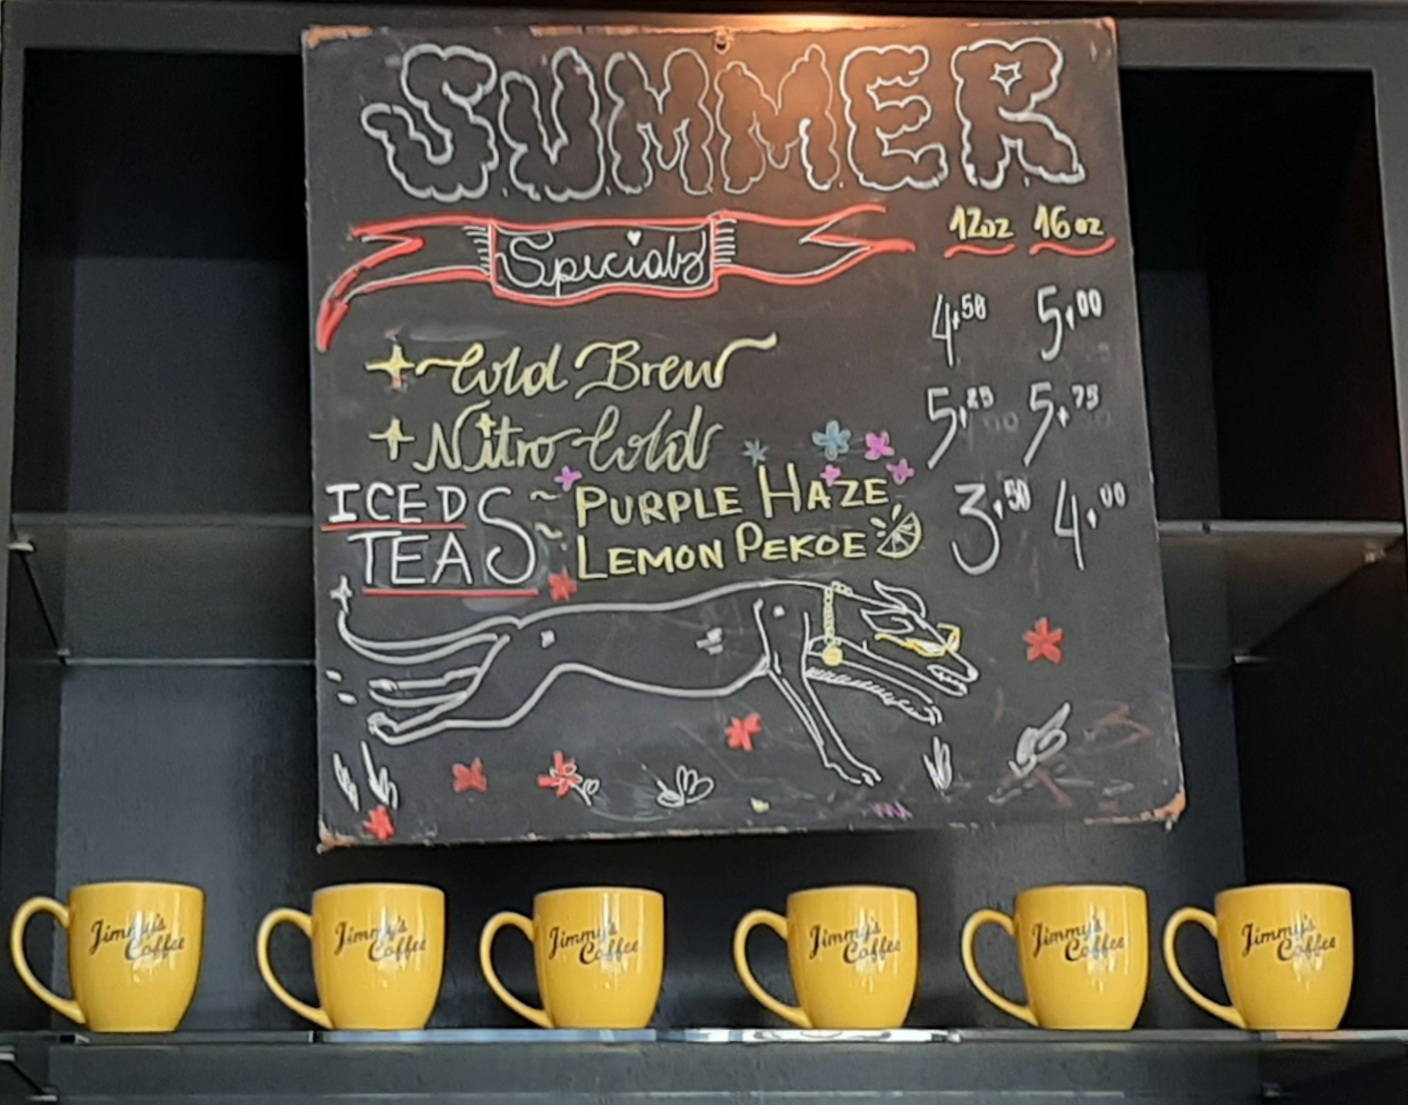 SUMMER
Specials
12oz 16oz
4.50 5.00
Cold Brew
5.25 5.75
Nitro Cold
ICED TEAS ~ PURPLE HAZE 3.50 4.00
~ LEMON PEKOE
Jimmy's Coffee
Jimmy's Coffee
Jimmy's Coffee
Jimmy's Coffee
Jimmy's Coffee
Jimmy's Coffee